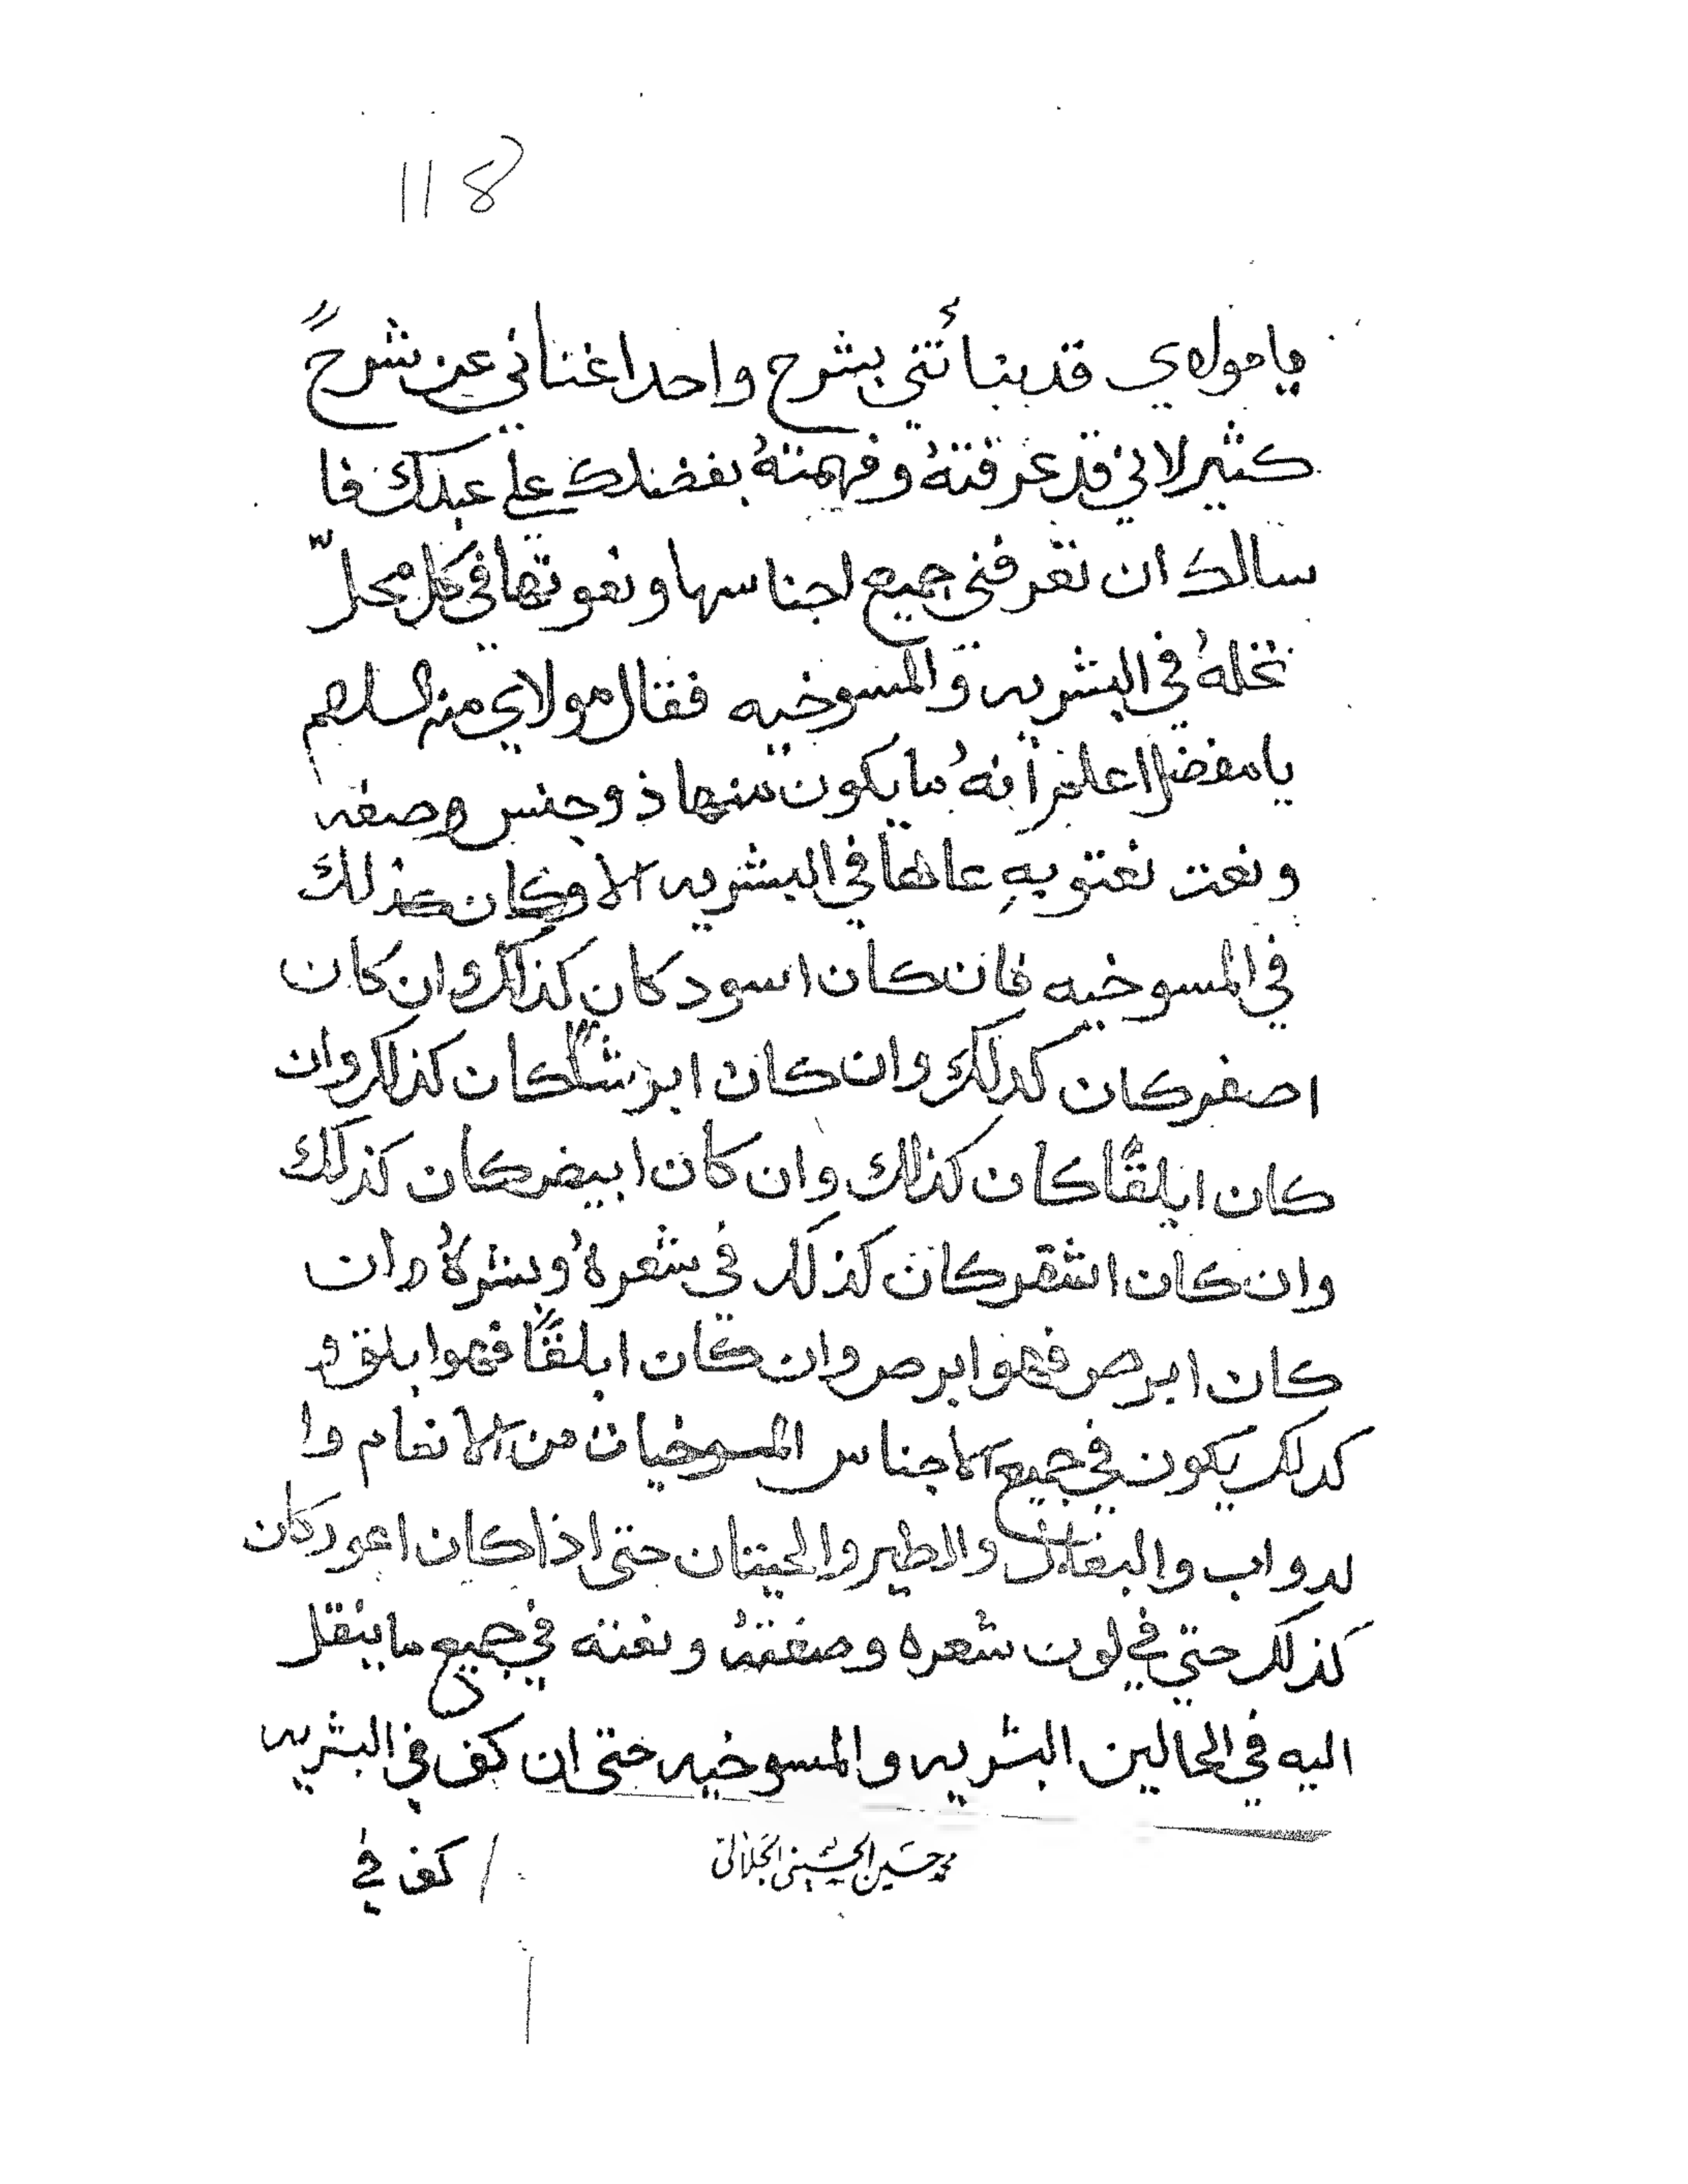 118
يا مولاي قد بنبأتني بشرح واحد اغناني عن شرحً
كثير لاني قد عرفتهُ وفهمتهُ بفضلك علي عبدك فا
سالك ان تعرفني جميع اجناسها ونعوتها في كل محلّ
تحلهُ في البشريه والمسوخيه فقال مولاي منه السلام
يا مفضل اعلم أنهُ ما يكون منها ذو جنس وصفه
ونعت نعتو بهِ عاهة في البشريه الا وكان كذلك
في المسوخيه فان كان اسود كان كذلك وان كان
اصفر كان كذلك وان كان ابرشاً كان كذلك وان
كان ابلقًا كان كذلك وان كان ابيض كان كذلك
وان كان اشقر كان كذلك في شعرهُ وبشرهُ وان
كان ابرص فهو ابرص وان كان ابلقًا فهو ابلق و
كذلك يكون في جميع الاجناس المسوخيات من الانعام وا
لدواب والبغال والطير والحيتان حتى اذا كان اعور كان
كذلك حتي في لون شعره وصفتهُ ونعته في جميع ما ينقل
اليه في الحالين البشريه والمسوخيه حتى ان كف في البشريه
كف في
محمد حسين الحسيني الجلالي